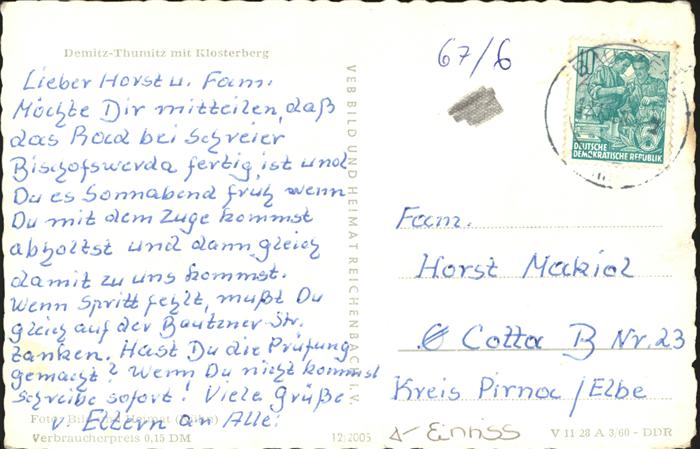 Demitz-Thumitz mit Klosterberg
Lieber Horst u. Fam.
Möchte Dir mitteilen, daß
das Rad bei Schreier
Bischofswerda fertig ist und
Du es Sonnabend früh wenn
Du mit dem Zuge kommst
abholtst und dann gleich
damit zu uns kommst.
Wenn Spritt fehlt, mußt Du
gleich auf der Bautzner-Str.
tanken. Hast Du die Prüfung
gemacht? Wenn Du nicht kommst
schreibe sofort! Viele Grüße
v. Eltern an Alle.
Verbraucherpreis 0,15 DM
12/2005
VEB BILD UND HEIMAT REICHENBACH I. V.
67/6
10
DEUTSCHE
DEMOKRATISCHE REPUBLIK
Fam.
Horst Makiol
Cotta B Nr. 23
Kreis Pirna/Elbe
Einriss
V 11 28 A 3/60 - DDR